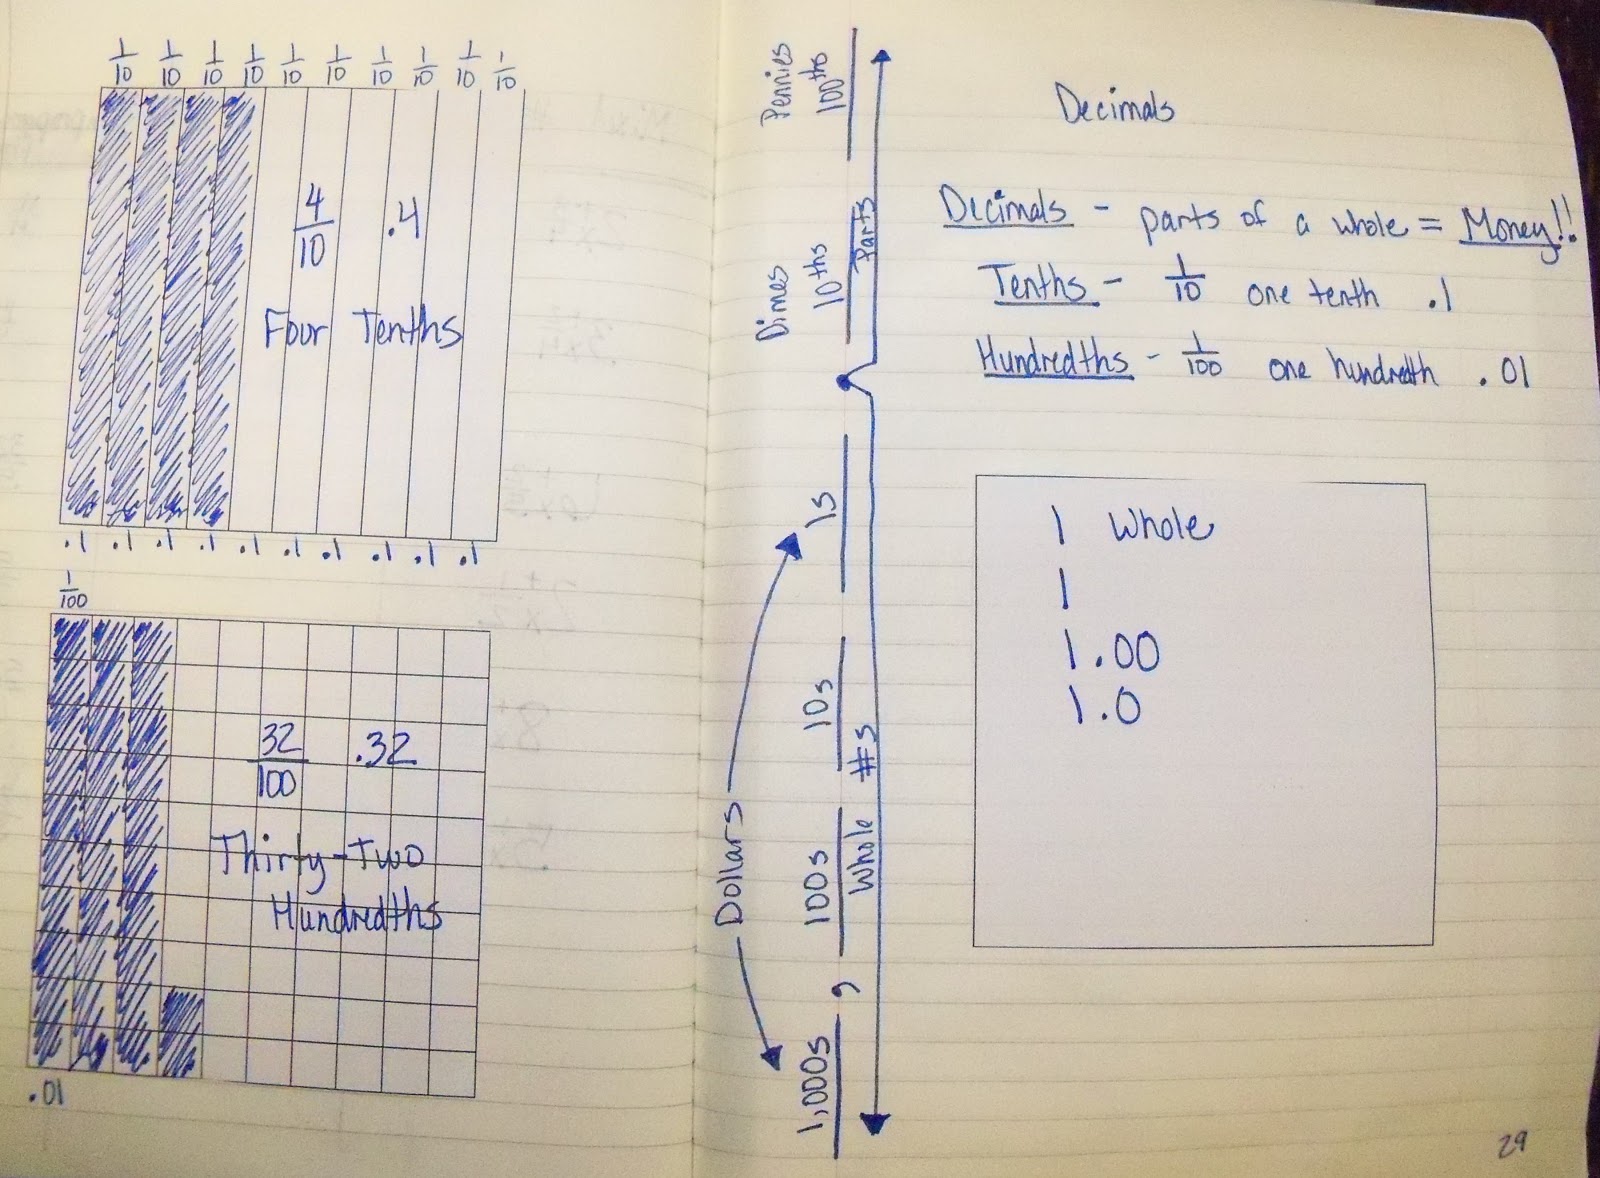 1/10 1/10 1/10 1/10 1/10 1/10 1/10 1/10 1/10 1/10
4/10 .4
Four Tenths
.1 .1 .1 .1 .1 .1 .1 .1 .1 .1
1/100
32/100 .32
Thirty-Two
Hundredths
.01
Dollars
1,000s , 100s 10s 1s . Dimes 10ths Pennies 100ths
Whole #s Parts
Decimals
Decimals - parts of a whole = Money!!
Tenths - 1/10 one tenth .1
Hundredths - 1/100 one hundredth .01
1 Whole
1
1.00
1.0
29